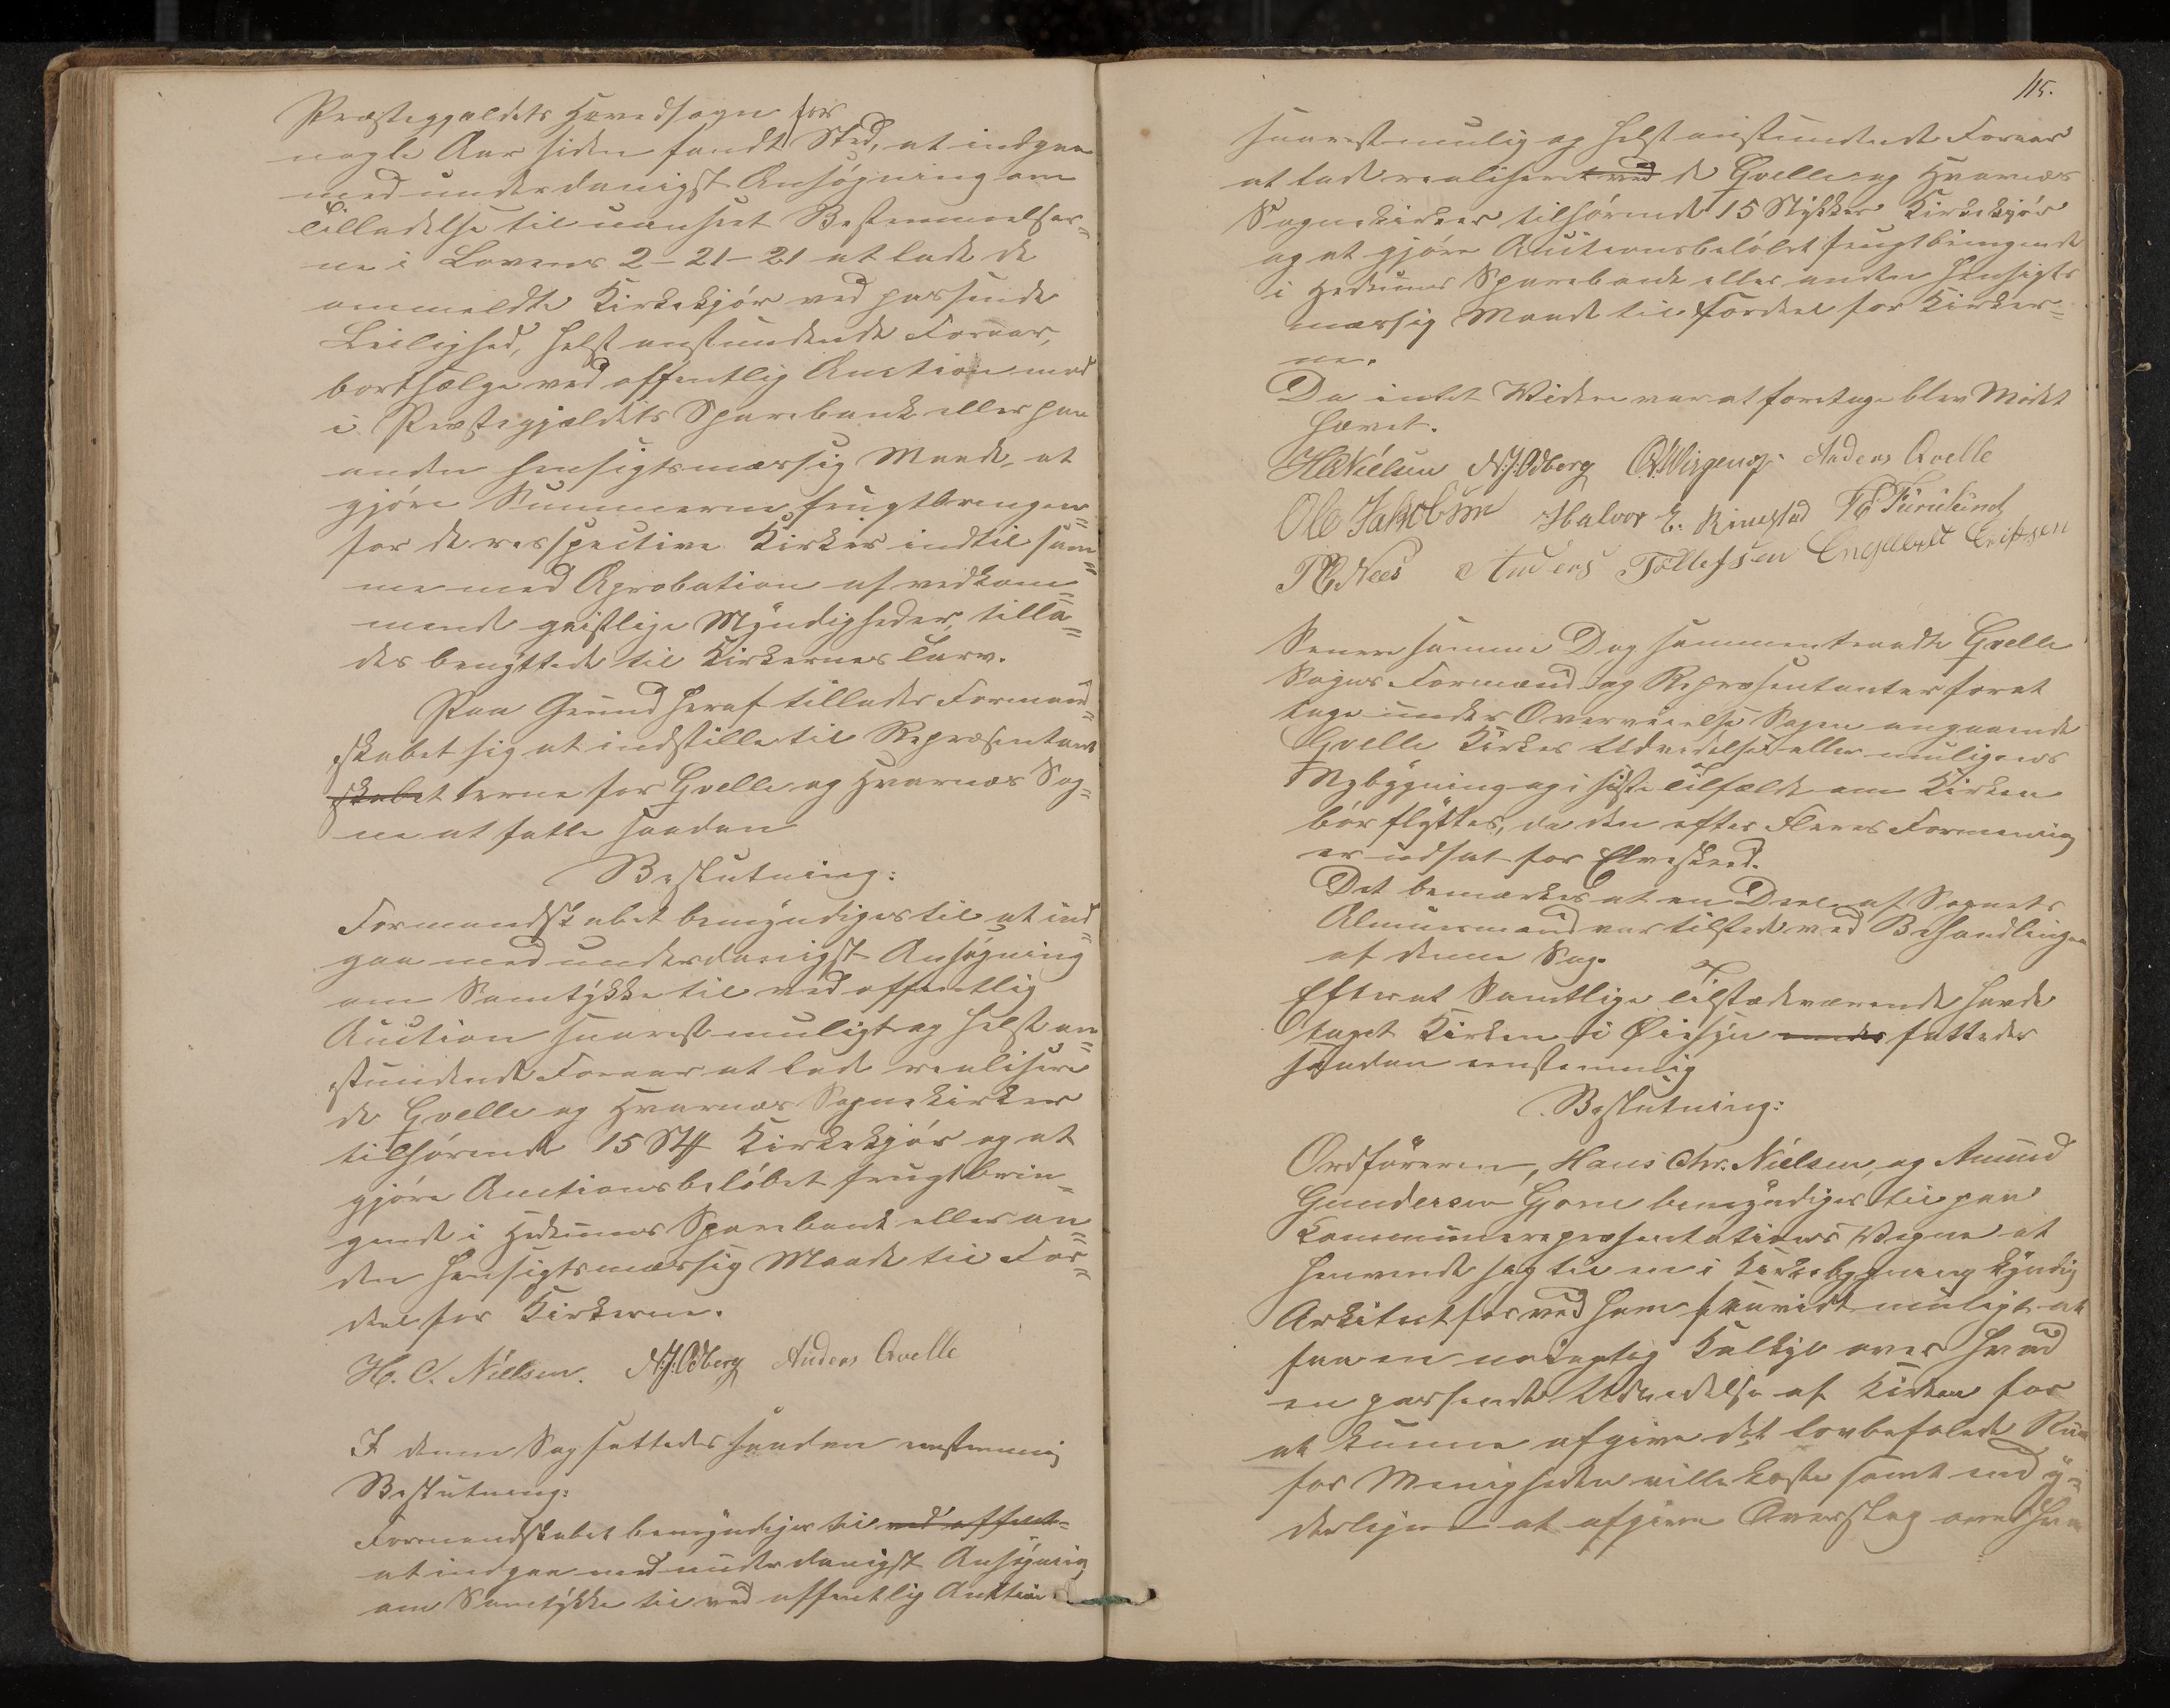 Præstegjældets Hovedsogn for
nogle Aar siden fandt Sted, at indgaa
med underdanigst Ansøgning om
Tilladelse til uanseet Bestemmelser=
ne i Lovens 2-21-21 at lade de
ommeldte Kirkekjør ved passende
Leilighed, helst anstundende Foraar,
bortsælge ved offentlig Auction mod
i Præstegjældets Sparebank eller paa
anden hensigtsmæssig Maade, at
gjøre Summerne frugtbringen=
for de respective Kirker indtil sam=
me med Aprobation af vedkom=
mende geistlige Myndigheder, tilla=
des benyttede til Kirkernes Tarv.
Paa Grund heraf tillader Formand=
skabet sig at indstille til Repræsentant
skabet terne for Qvelle og Hvarnæs Sog=
ne at fatte saadan
Beslutning:
Formandskabet bemyndiges til at ind=
gaa med underdanigst Ansøgning
om Samtykke til ved offentlig
Auction snarest muligt og helst an=
stundende Foraar at lade realisere
de Qvelle og Hvarnæs Sognekirker
tilhørende 15 Stk Kirkekjør og at
gjøre Auctionsbeløbet frugtbrin=
gende i Hedrums Sparebank eller an=
den hensigtsmæssig Maade til For=
del for Kirkerne.
H. C. Nielsen. N. J. Odberg Anders Qvelle
I denne Sag fattedes saadan eenstemmig
Beslutning:
Formandskabet bemyndiges til ved offent=
at indgaa med underdanigst Ansøgning
om Samtykke til ved offentlig Auktion
115.
snarest mulig og helst anstundende Foraar
at lade realisere ved de Qvelle og Hvarnæs
Sognekirker tilhørende 15 Stykker Kirkekjør
og at gjøre Auctionsbeløbet frugtbringende
i Hedrums Sparebank eller anden hensigts
mæssig Maade til Fordeel for Kirker=
ne.
Da intet Videre var at foretage blev Mødet
hævet.
HCNielsen N.J.Odberg Anders Qvelle
Ole Jakobsen Halvor E. Rinestad
Anders Tollefsen Engelbret
Senere samme Dag sammentraadte Qvelle
Sogns Formænd og Repræsentanter forat
tage under Overveielse Sagen angaaende
Qvelle Kirkes Udvidelse eller muligens
Nybygning og i sidste Tilfælde om Kirken
bør flyttes, da den efter Fleres Formening
er udsat for Elveskred.
Det bemærkes at en Deel af Sognets
Almuesmænd var tilstede ved Behandlingen
af denne Sag.
Efter at Samtlige Tilstedeværende havde
taget Kirken i Øiesyn fattedes
saadan eenstemmig
Beslutning:
Ordføreren, Hans Chr. Nielsen, og Amund
Gundersen Gone bemyndiges til paa
Kommunerepræsentationens Vegne at
henvende sig til en i Kirkebygning kyndig
Arkitect for ved ham saavidt muligt at
faa en nøiagtig Kalkyl over hvad
en passende Udvidelse af Kirken for
at kunne afgive det lovbefalede Rum
for Menigheden ville koste samt end y=
derligere at afgive Overslag over hva